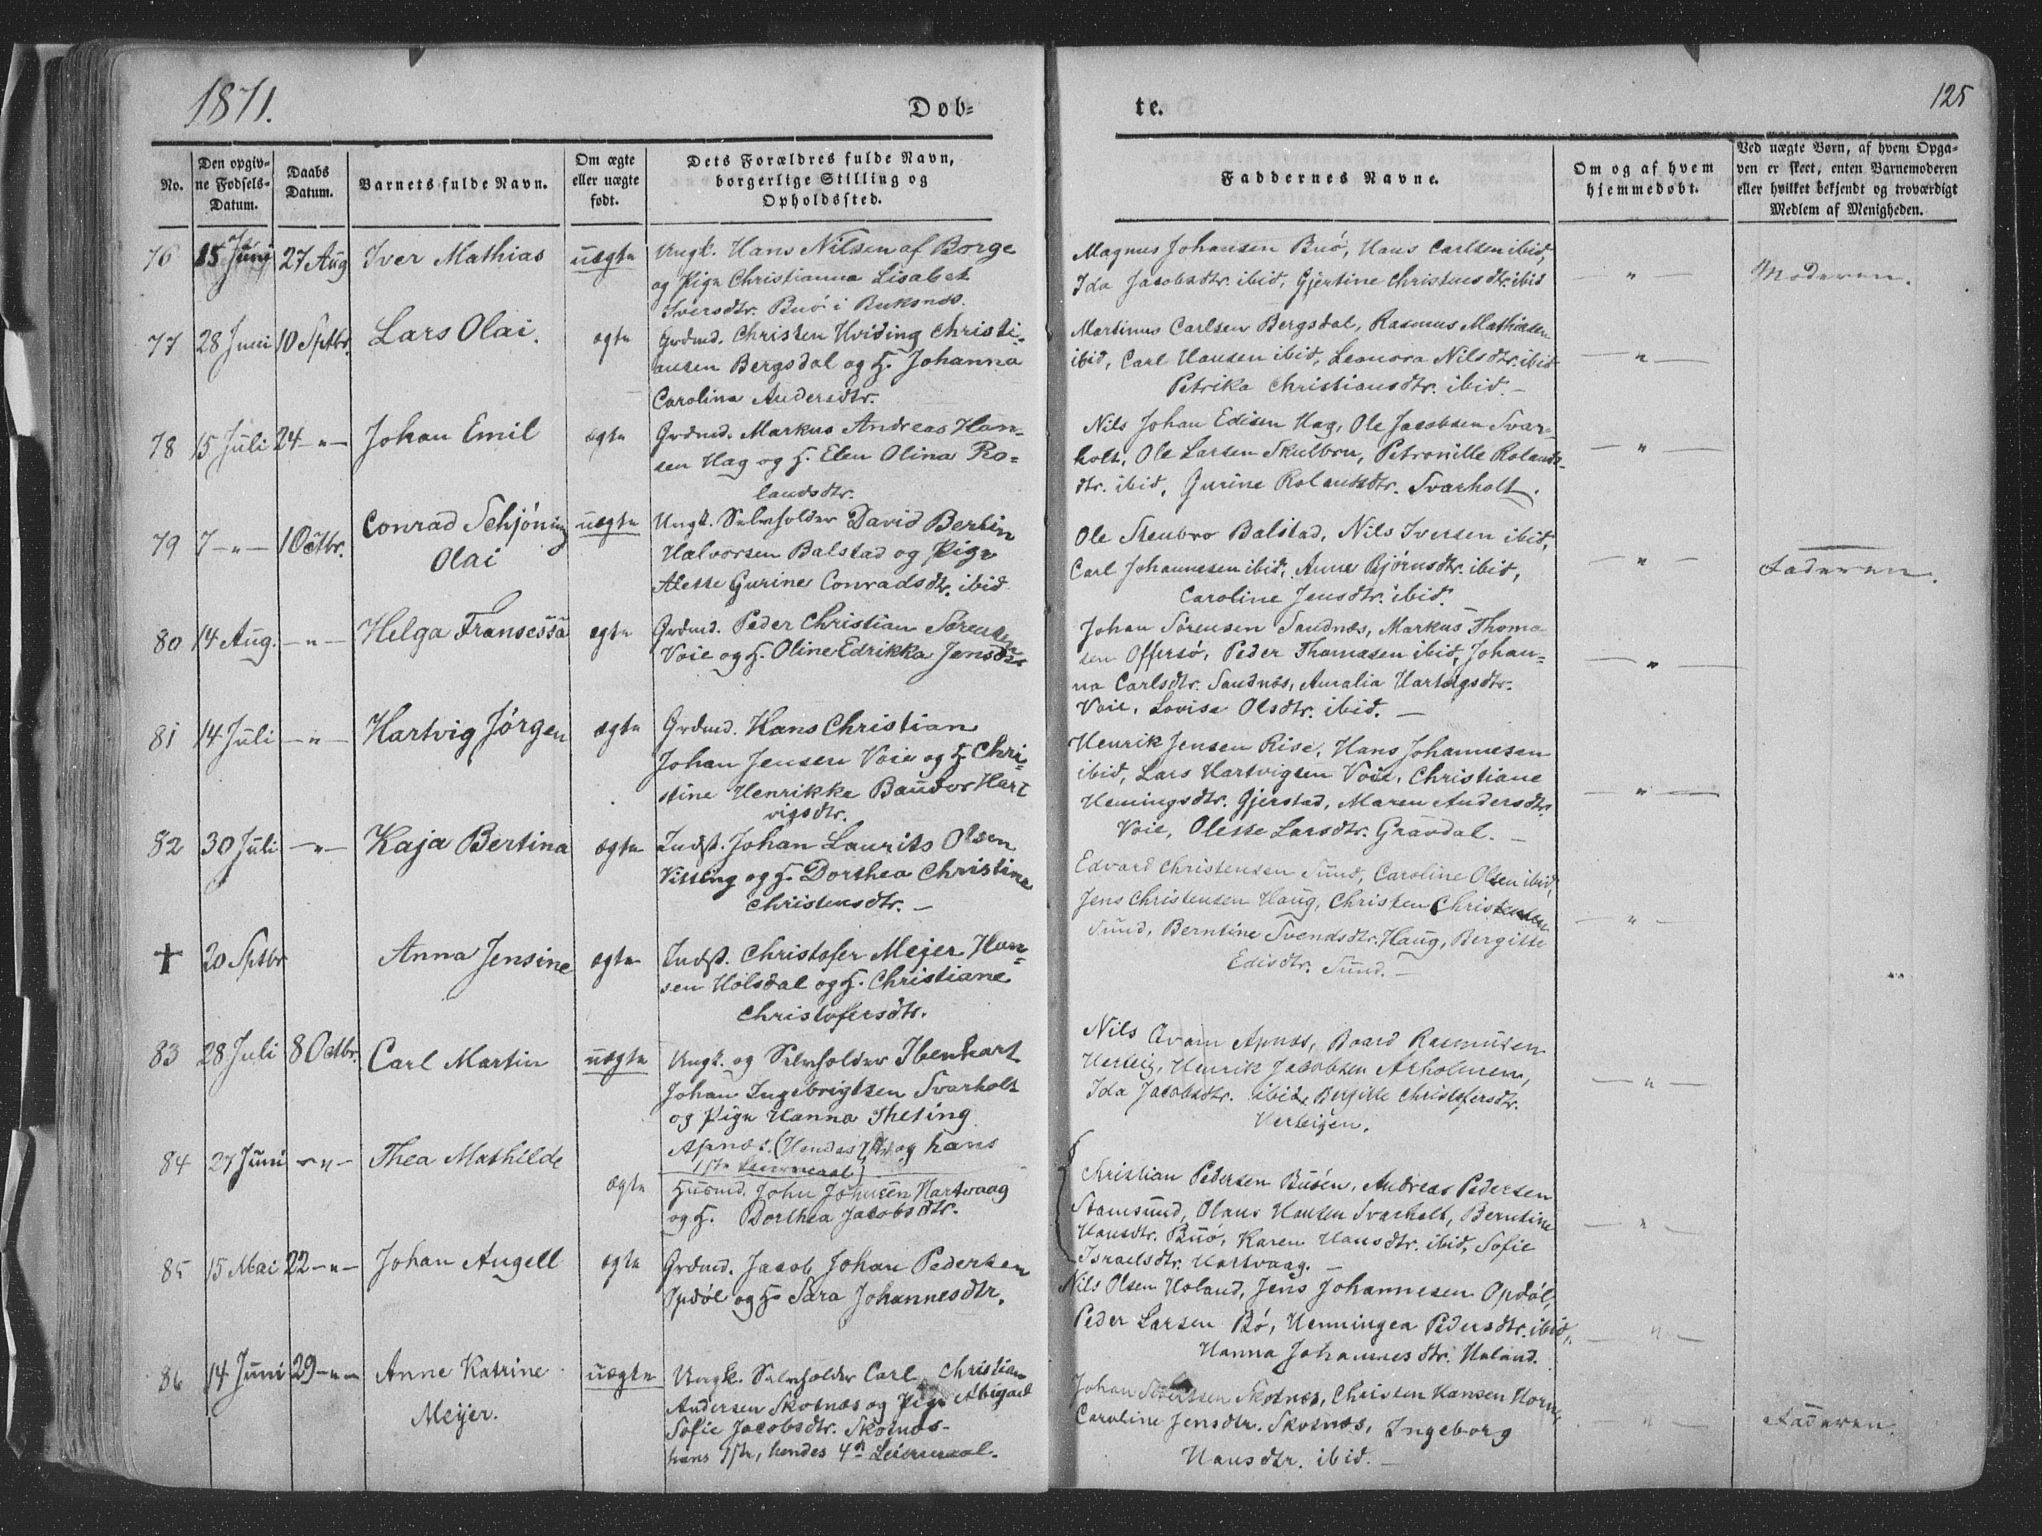 1871.
Døb-
te.
125
No.
Den opgiv-
ne Fødsels-
Datum.
Daabs
Datum.
Barnets fulde Navn.
Om ægte
eller uægte
født.
Dets Forældres fulde Navn,
borgerlige Stilling og
Opholdssted.
Faddernes Navne.
Om og af hvem
hjemmedøbt.
Ved uægte Børn, af hvem Opga-
ven er skeet, enten Barnemoderen
eller hvilket bekjendt og troværdigt
Medlem af Menigheden.
76 15 Juni 27 Aug Iver Mathias uægte
Ungk. Hans Nilsen af Borge
og Pige Christianna Lisabet
Iversdtr. Buø i Buksnæs.
Magnus Johansen Buø, Hans Carlsen ibid,
Ida Jacobsdtr. ibid, Gjertine Christensdtr. ibid
— " — Moderen.
77 28 Juni 10 Sptbr. Lars Olai. ægte
Grdmd. Christen Hviding Christi-
ansen Bergsdal og H. Johanna
Carolina Andersdtr.
Martinus Carlsen Bergsdal, Rasmus Mathisen
ibid, Carl Hansen ibid, Leonora Nilsdtr. ibid
Petrika Christiansdtr. ibid. —
— " —
78 15 Juli 24 — " — Johan Emil ægte
Grdmd. Markus Andreas Han-
sen Hag og H. Elen Olina Ro-
landsdtr.
Nils Johan Edisen Hag, Ole Jacobsen Svar-
holt, Ole Larsen Skulbru, Petronille Rolands-
dtr. ibid, Gurine Rolandsdtr. Svarholt.
— " —
79 7 — " — 1 Octbr. Conrad Schjöning
Olai
uægte
Ungk. Selvholder David Bertin
Halvorsen Balstad og Pige
Alette Gurine Conradsdtr. ibid
Ole Steubro Balstad, Nils Iversen ibid,
Carl Johannesen ibid, Anne Bjørnsdtr. ibid,
Caroline Jensdtr. ibid.
— " — Faderen.
80 14 Aug. — " — Helga Fransessa ægte
Grdmd. Peder Christian Sørensen
Voie og H. Oline Edrikka Jensdtr
Johan Sørensen Sandnæs, Markus Thoma-
sen Offersø, Peder Thomasen ibid, Johan-
na Carlsdtr. Sandnæs, Amalia Hartvigsdtr.
Voie, Lovise Olsdtr. ibid. —
— " —
81 14 Juli — " — Hartvig Jörgen ægte
Grdmd. Hans Christian
Johan Jensen Voie og H. Chri-
stine Henrikke Baudor Hart
vigsdtr.
Henrik Jensen Rise, Hans Johannesen
ibid, Lars Hartvigsen Voie, Christiane
Hemingsdtr. Gjerstad, Maren Andersdtr.
Voie, Olesse Larsdtr. Gravdal. —
— " —
82 30 Juli — " — Kaja Bertina ægte
Indst. Johan Laurits Olsen
Vitting og H. Dorthea Christine
Christensdtr. —
Edvard Christensen Sund, Caroline Olsen ibid,
Jens Christensen Haug, Christen Christensen
Sund, Berntine Svendsdtr. Haug, Bergitte
Edisdtr. Sund. —
— " —
✝ 20 Sptbr Anna Jensine ægte
Indst. Christofer Mejer Han-
sen Holsdal og H. Christiane
Christofersdtr.
83 28 Juli 8 Octbr. Carl Martin uægte
Ungk. og Selvholder Ibenhart
Johan Ingebrigtsen Svarholt
og Pige Hanna Theting
Apnæs. (Hendes og hans
1ste Leiermaal)
Nils Avam Apnæs, Baard Rasmusen
Henrik Jacobsen Arholmen,
Ida Jacobsdtr. ibid, Bergitte Christofersdtr.
— " —
84 27 Juni — " — Thea Mathilde ægte
Husmd. John Johnsen Hartvaag
og H. Dorthea Jacobsdtr.
Christian Pedersen Buöen, Andreas Pedersen
Stamsund, Olaus Hansen Svarholt, Berntine
Hansdtr. Buø, Karen Hansdtr. ibid, Sofie
Israelsdtr. Hartvaag. —
— " —
85 15 Mai 22 — " — Johan Angell ægte
Grdmd. Jacob Johan Pedersen
Opdøl og H. Sara Johannesdtr.
Nils Olsen Holand, Jens Johannesen Opdøl,
Peder Larsen Bø, Henningea Pedersdtr. ibid,
Hanna Johannesdtr. Holand.
— " —
86 14 Juni 29 — " — Anne Katrine
Meyer.
uægte
Ungk. Selvholder Carl Christian
Andersen Skotnæs og Pige Abigael
Sofie Jacobsdtr. Skotnæs-
hans 1ste, hendes 4de Leiermaal.
Johan Skotnæs, Christen Hansen Horn,
Caroline Jensdtr. Skotnæs, Ingeborg
Hansdtr. ibid. —
— " — Faderen.